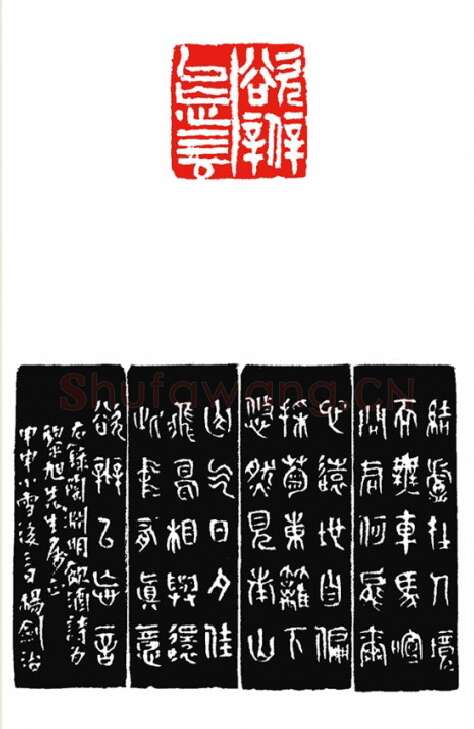 欲辨
已忘言
Shufawang.CN
結廬在人境
而無車馬喧
問君何能爾
心遠地自偏
採菊東籬下
悠然見南山
山气日夕佳
飛鳥相與還
此中有眞意
欲辨已忘言
右錄陶淵明飲酒詩為
旭先生屬正
甲申小雪後三日楊劍治